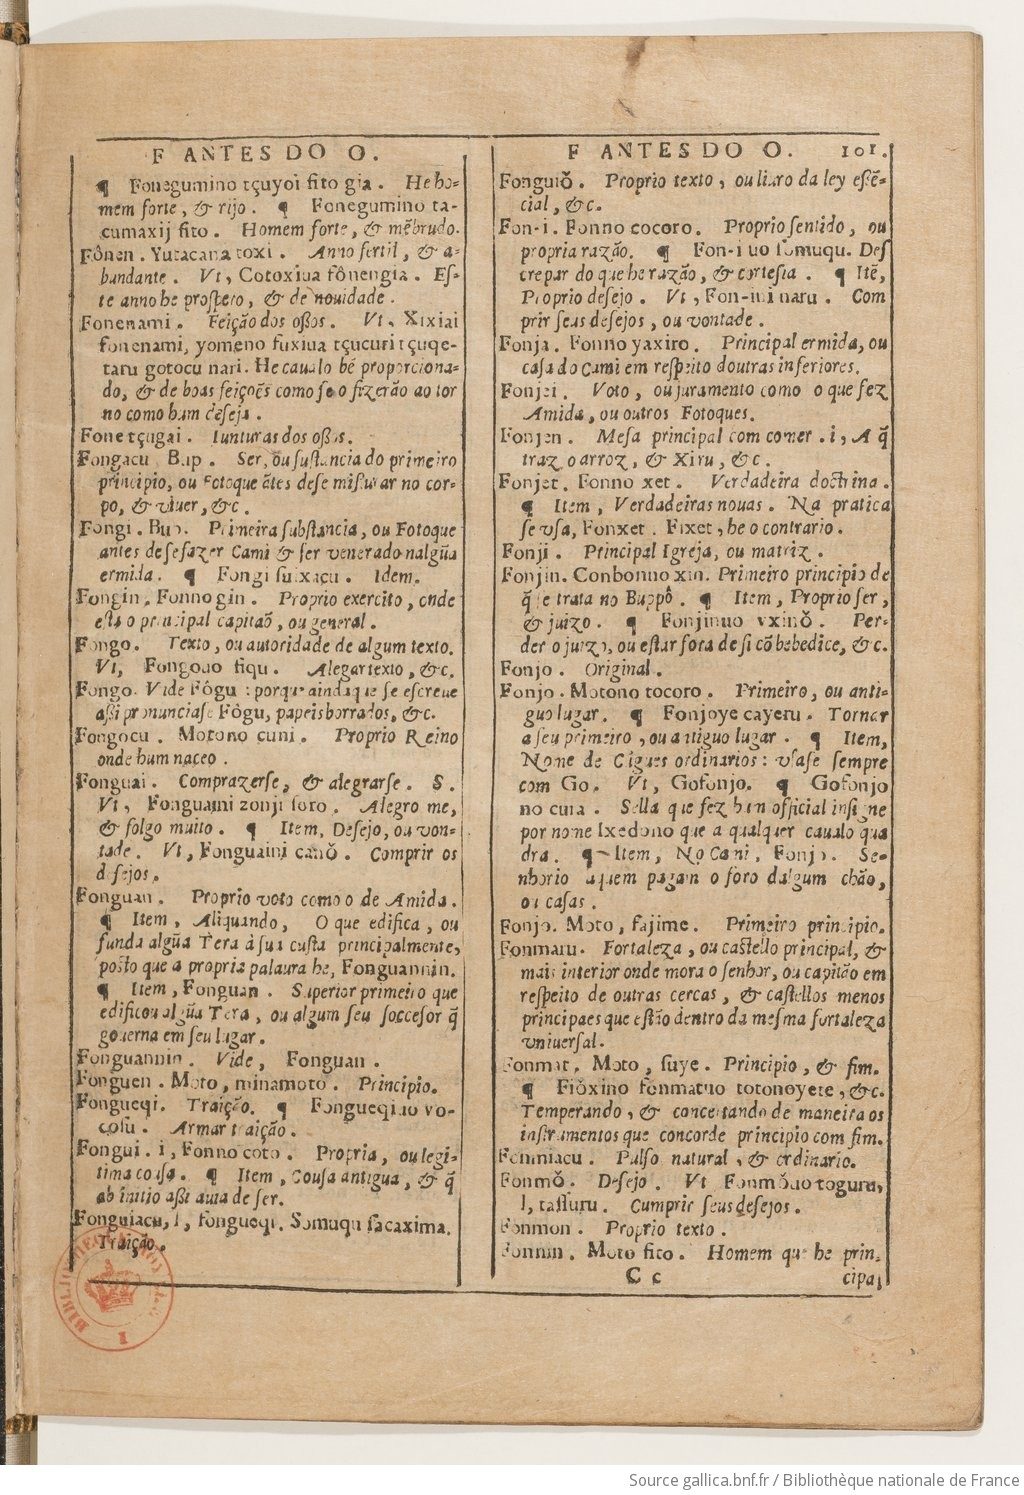 F ANTES DO O.
¶ Fonegumino tçuyoi fito gia. He ho-
mem forte, & rijo. ¶ Fonegumino ta-
cumaxij fito. Homem forte, & mẽbrudo.
Fônen. Yutacana toxi. Anno fertil, & a-
bundante. Vt, Cotoxiua fônengia. Eſ-
te anno he proſpero, & de nouidade.
Fonenami. Feição dos oßos. Vt, Xixiai
fonenami, yomeno fuxiua tçucuri tçuqe-
taru gotocu nari. He caualo bẽ proporciona-
do, & de boas feiçoẽs como ſe o fizerão ao tor
no como hum deſeja.
Fonetçugai. Iunturas dos oßos.
Fongacu Bup. Ser, ou ſuſtancia do primeiro
principio, ou Fotoque ãtes de ſe miſturar no cor-
po, & viuer, &c.
Fongi. Bup. Primeira ſubſtancia, ou Fotoque
antes de ſe fazer Cami & ſer venerado nalgũa
ermida. ¶ Fongi ſuixacu. Idem.
Fongin, Fonno gin. Proprio exercito, onde
eſta o principal capitaõ, ou general.
Fongo. Texto, ou autoridade de algum texto.
Vt, Fongouo fiqu. Alegar texto, &c.
Fongo. Vide Fôgu: porque ainda que ſe eſcreue
aßi pronunciaſe Fôgu, papeis borrados, &c.
Fongocu. Motono cuni. Proprio Reino
onde hum naceo.
Fonguai. Comprazerſe, & alegrarſe. S.
Vt, Fonguaini zonji ſoro. Alegro me,
& folgo muito. ¶ Item, Deſejo, ou von-
tade. Vt, Fonguaini canǒ. Comprir os
deſejos.
Fonguan. Proprio voto como o de Amida.
¶ Item, Aliquando, O que edifica, ou
funda algũa Tera à ſua cuſta principalmente,
poſto que a propria palaura he, Fonguannin.
¶ Item, Fonguan. Superior primeiro que
edificou algũa Tera, ou algum ſeu ſocceſor q̃
gouerna em ſeu lugar.
Fonguannin. Vide, Fonguan.
Fonguen. Moto, minamoto. Principio.
Fongueqi. Traição. ¶ Fongueqiuo vo-
coſu. Armar traição.
Fongui. i, Fonno coto. Propria, ou legi-
tima couſa. ¶ Item, Couſa antigua, & q̃
ab initio aßi auia de ſer.
Fonguiacu, l, fongueqi. Somuqu ſacaxima.
Traição.
F ANTES DO O. 101.
Fonguiǒ. Proprio texto, ou liuro da ley eſſẽ-
cial, &c.
Fon-i. Fonno cocoro. Proprio ſentido, ou
propria razão. ¶ Fon-i uo ſomuqu. Deſ
crepar do que he razão, & corteſia. ¶ Itẽ,
Proprio deſejo. Vt, Fon-ini naru. Com
prir ſeus deſejos, ou vontade.
Fonja. Fonno yaxiro. Principal ermida, ou
caſa do Cami em reſpeito doutras inferiores.
Fonjei. Voto, ou juramento como o que fez
Amida, ou outros Fotoques.
Fonjen. Meſa principal com comer. i, A q̃
traz o arroz, & Xiru, &c.
Fonjet. Fonno xet. Verdadeira doctrina.
¶ Item, Verdadeiras nouas. Na pratica
ſe vſa, Fonxet. Fixet, he o contrario.
Fonji. Principal Igreja, ou matriz.
Fonjin. Conbonno xin. Primeiro principio de
q̃ ſe trata no Buppô. ¶ Item, Proprio ſer,
& juizo. ¶ Fonjinuo vxinǒ. Per-
der o juizo, ou eſtar fora de ſi cõ bebedice, &c.
Fonjo. Original.
Fonjo. Motono tocoro. Primeiro, ou anti-
guo lugar. ¶ Fonjoye cayeru. Tornar
a ſeu primeiro, ou antiguo lugar. ¶ Item,
None de Cigues ordinarios: vſaſe ſempre
com Go. Vt, Gofonjo. ¶ Gofonjo
no cura. Sella que fez hum official inſigne
por nome Ixedono que a qualquer caualo qua
dra. ¶ Item, No Cani, Fonjo. Se-
nhorio a quem pagam o foro dalgum chão,
ou caſas.
Fonjo. Moto, fajime. Primeiro principio.
Fonmaru. Fortaleza, ou caſtello principal, &
mais interior onde mora o ſenhor, ou capitão em
reſpeito de outras cercas, & caſtellos menos
principaes que eſtão dentro da meſma fortaleza
vniuerſal.
Fonmat. Moto, ſuye. Principio, & fim.
¶ Fiǒxino fonmatuo totonoyete, &c.
Temperando, & concertando de maneira os
inſtrumentos que concorde principio com fim.
Fonmiacu. Pulſo natural, & ordinario.
Fonmǒ. Deſejo. Vt Fonmǒuo toguru,
l, taſſuru. Cumprir ſeus deſejos.
Fonmon. Proprio texto.
Fonnin. Moto fito. Homem que he prin-
C c cipal
BIBLIOTHEQUE
Source gallica.bnf.fr / Bibliothèque nationale de France